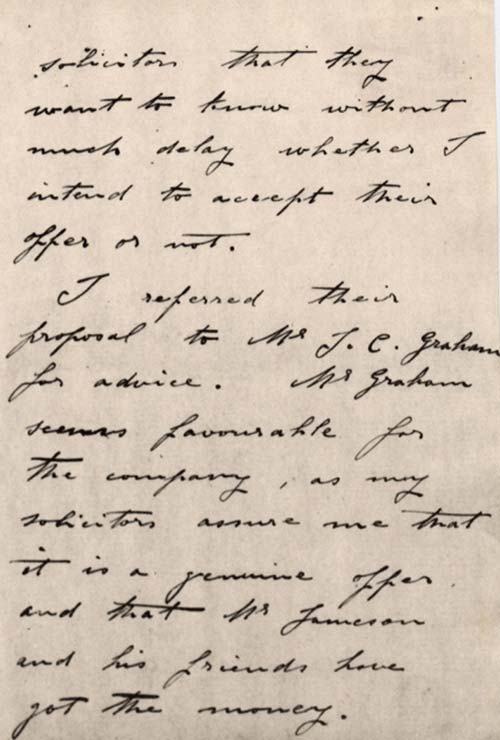 solicitors that they
want to know without
much delay whether I
intend to accept their
offer or not.
I referred their
proposal to Mr J. C. Graham
for advice. Mr Graham
seems favourable for
the company, as my
solicitors assure me that
it is a genuine offer
and that Mr Jameson
and his friends have
got the money.